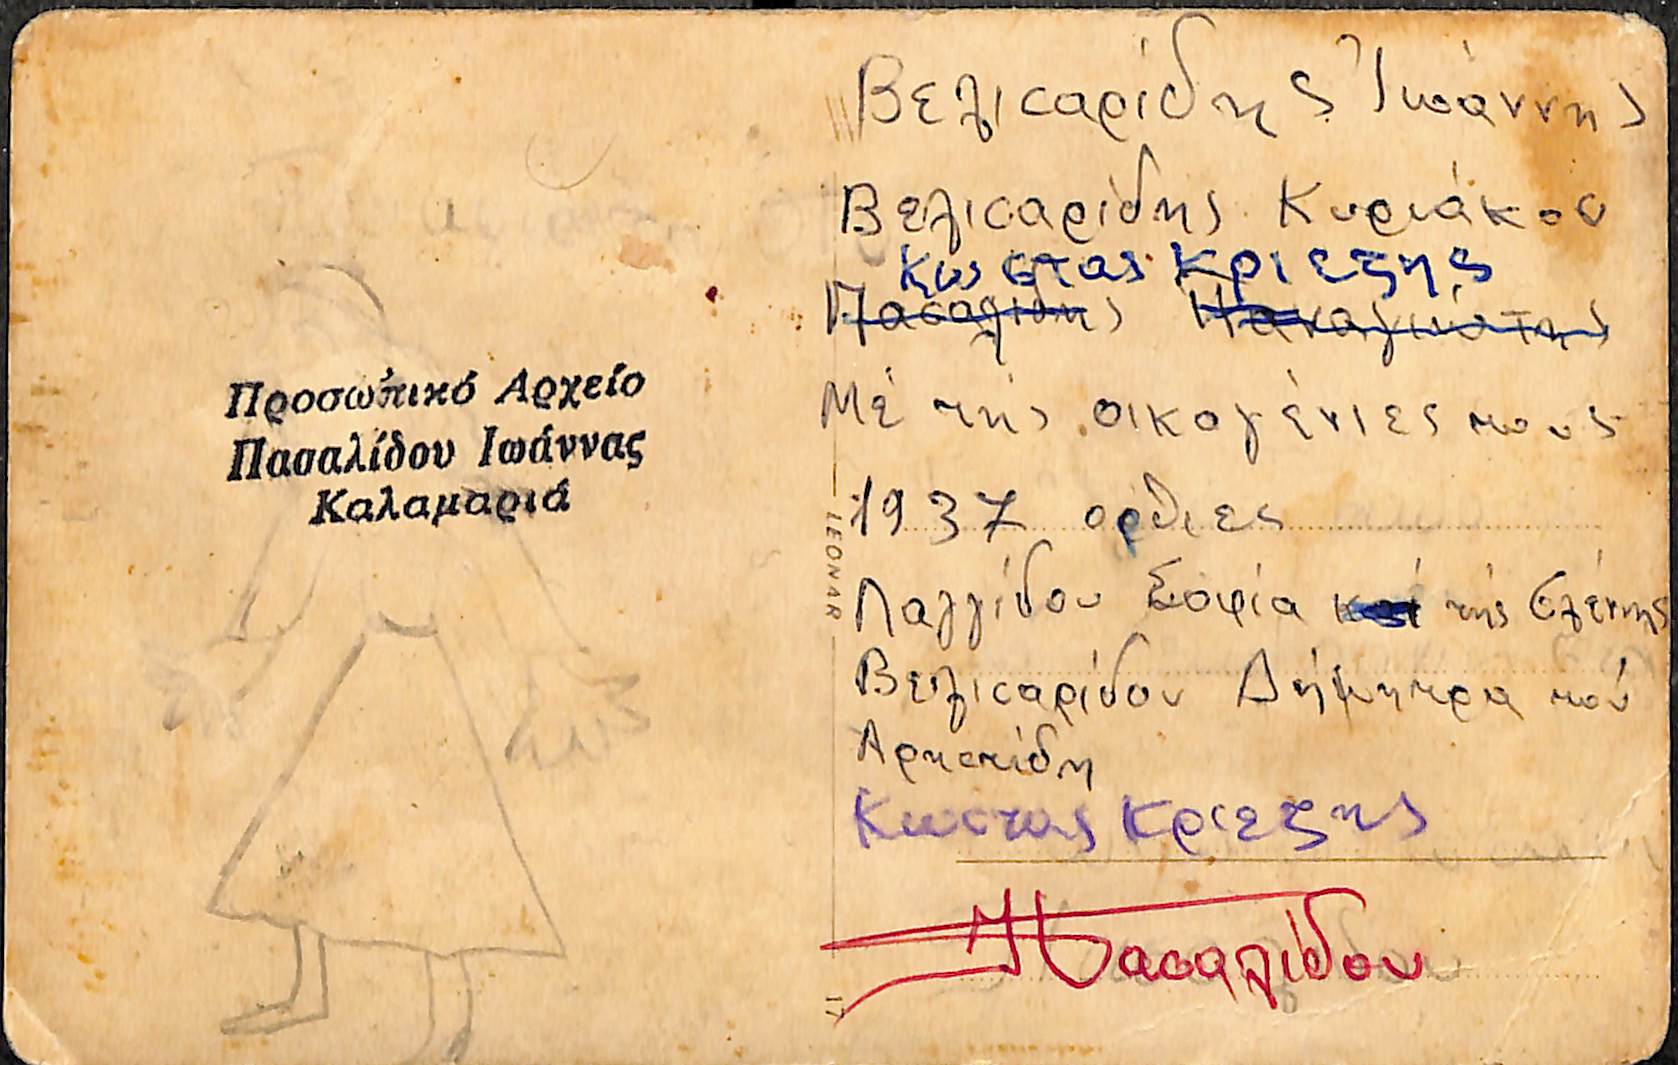 Προσωπικό Αρχείο
Πασαλίδου Ιωάννας
Καλαμαριά
LEONAR
17
Βελισαρίδης Ἰωάννης
Βελισαρίδης Κυριάκου
Κωστας Κριεζης
Πασαλίδης Παναγιώτης
Μέ τής οικογένιες τους
1937 ορθιες
Λαγγίδου Σοφία και τής Ελένης
Βελισαρίδου Δήμητρα τού
Αρηστίδη
Κωστας Κριεζης
Πασαλίδου